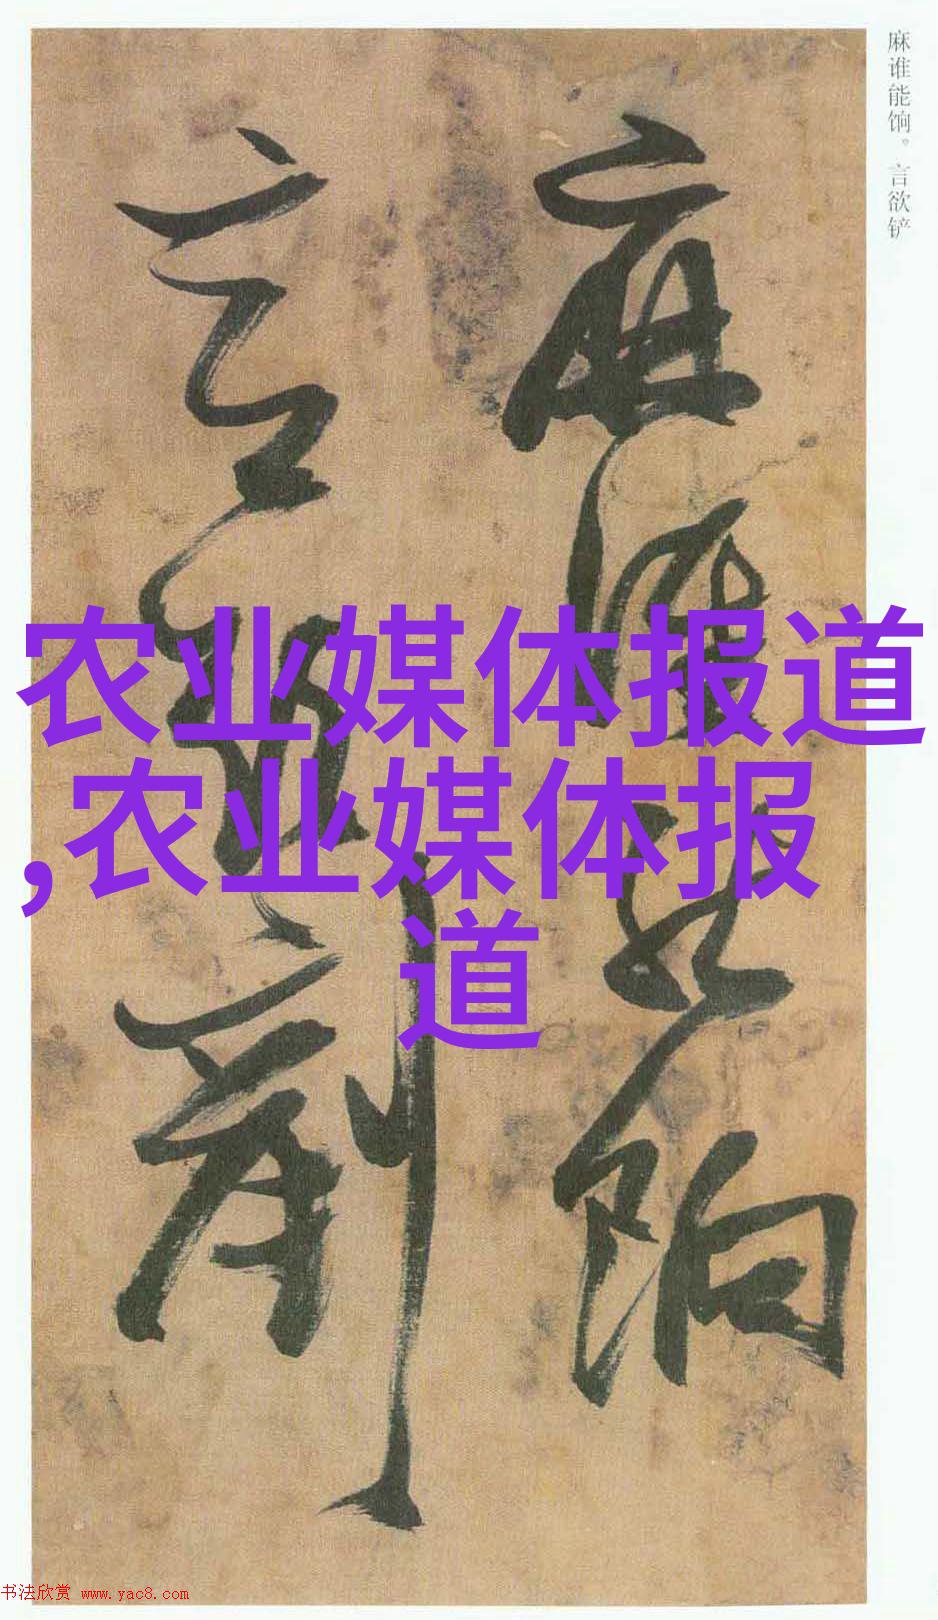 麻谁能饷。言欲铲
麻谁能饷
言欲剷
农业媒体报道
,农业媒体报
道
书法欣赏 www.yac8.com